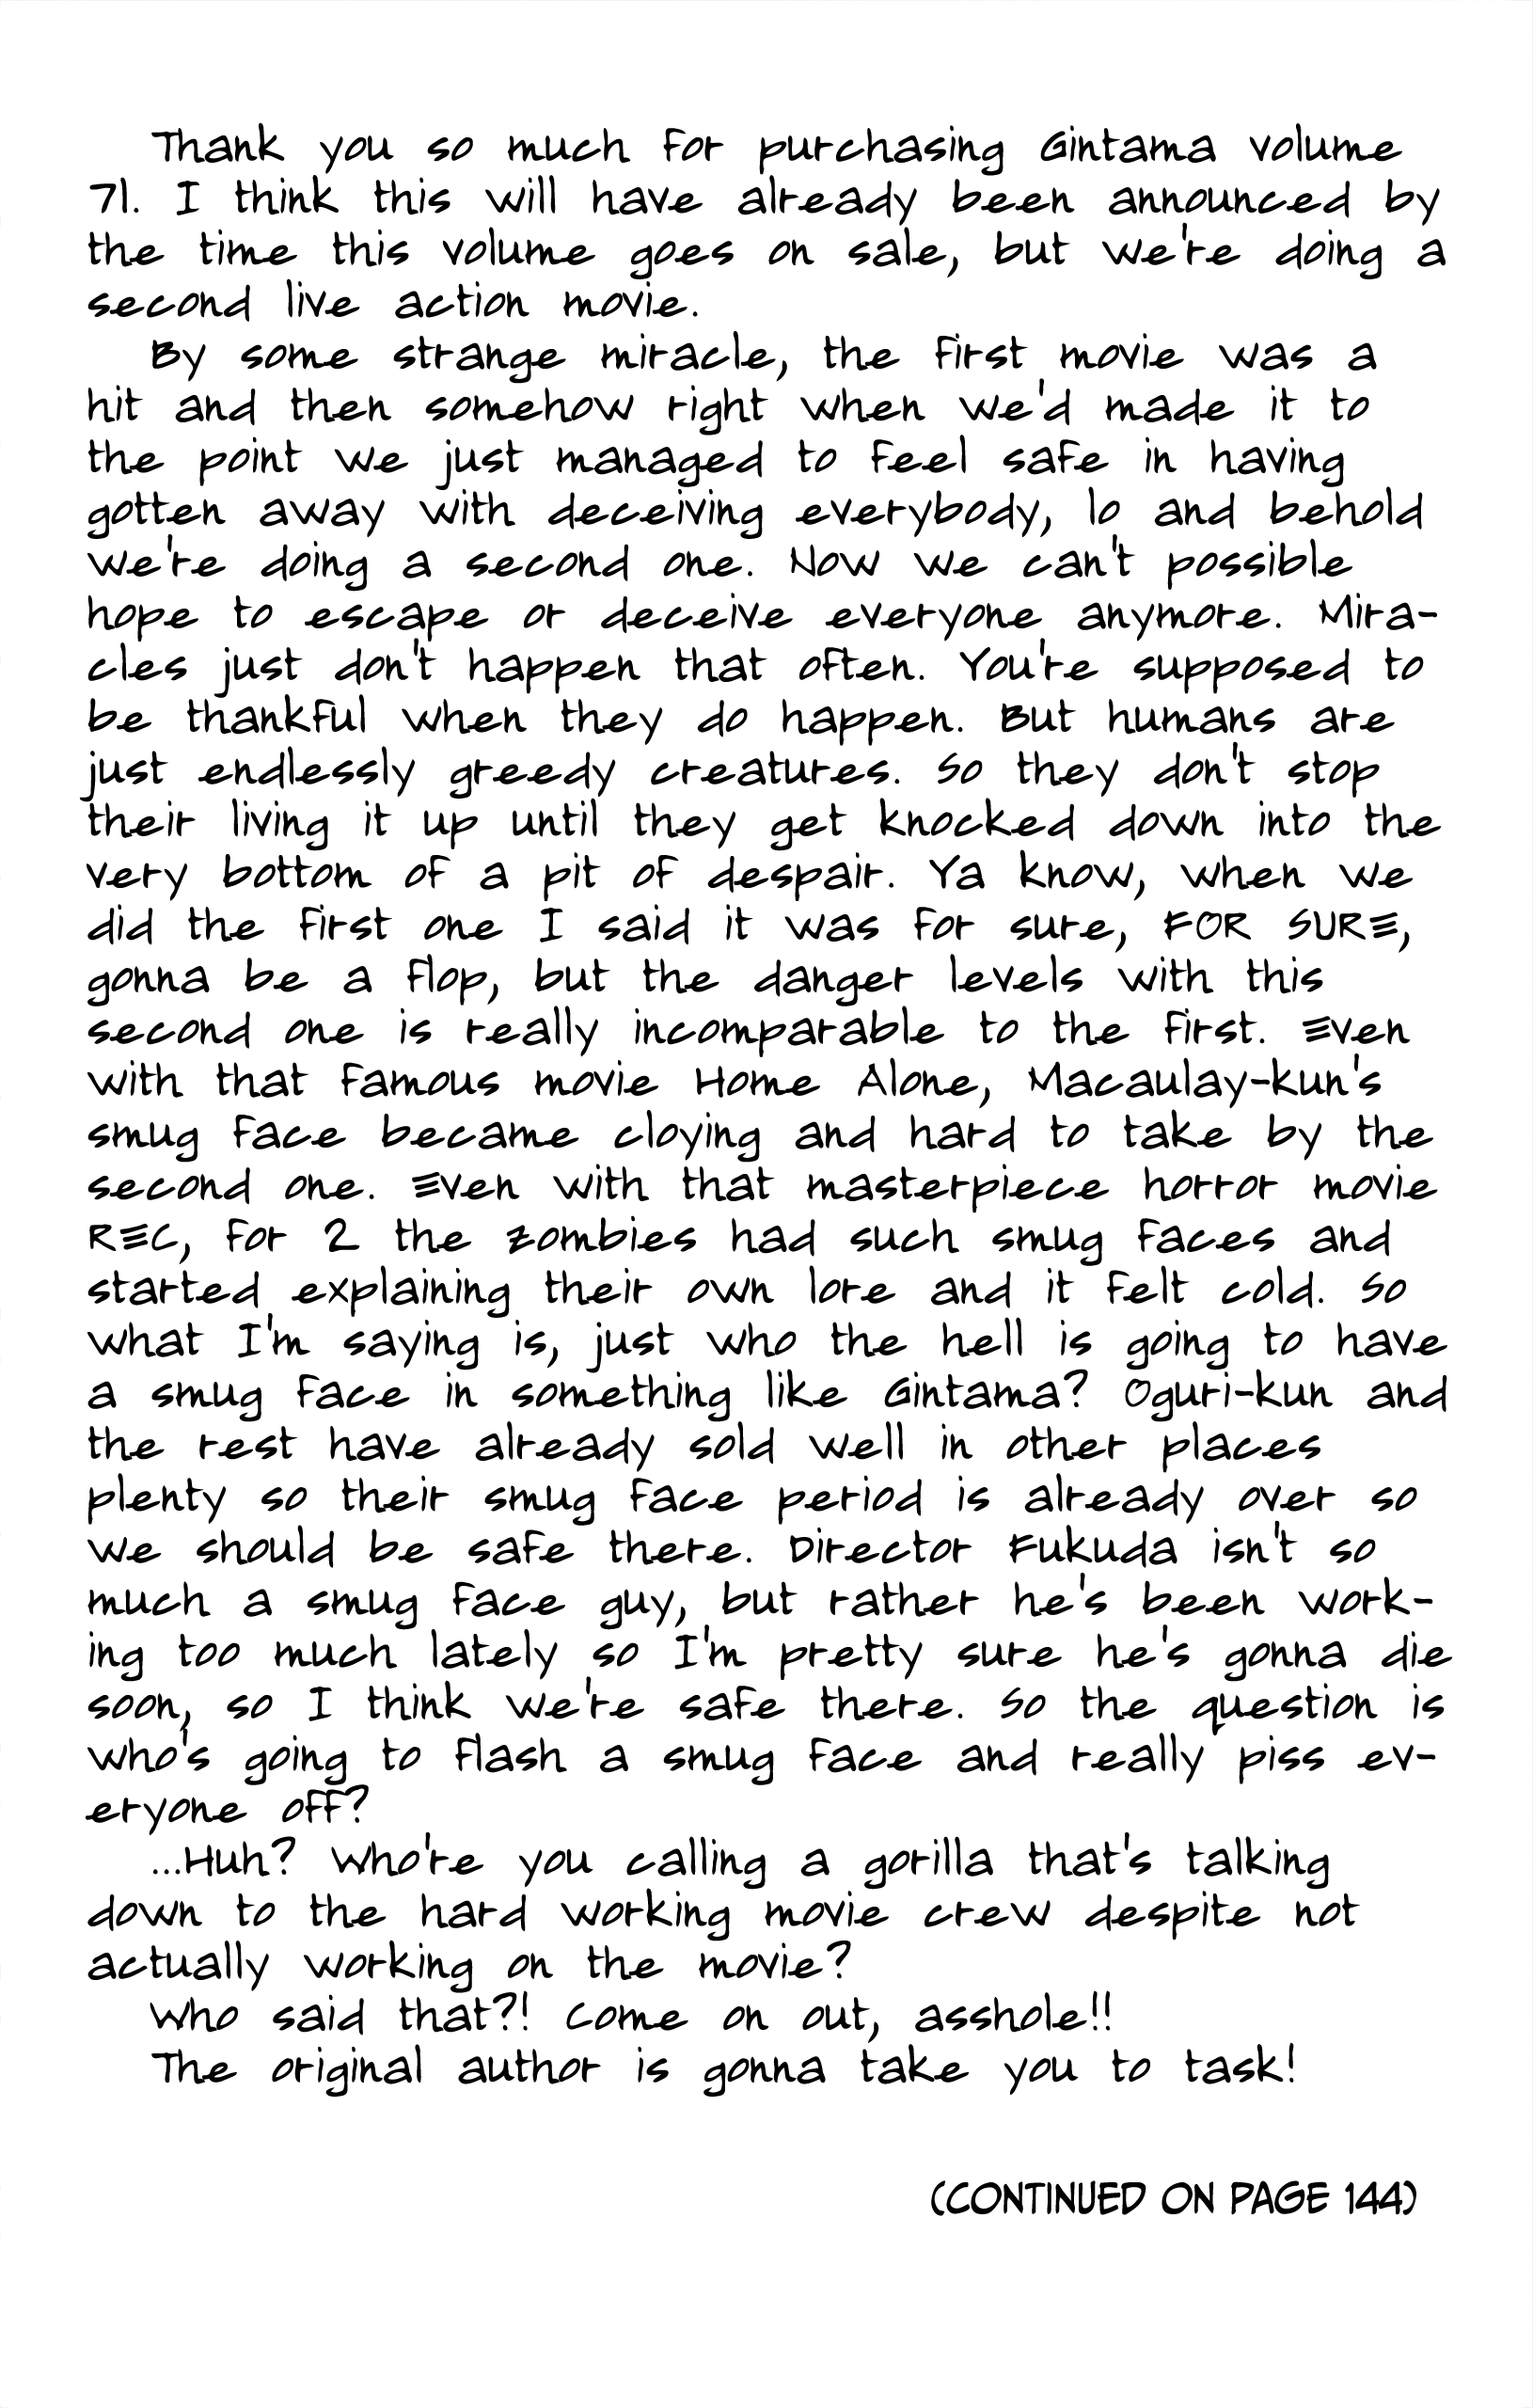 Thank you so much for purchasing Gintama volume
71. I think this will have already been announced by
the time this volume goes on sale, but we're doing a
second live action movie.
By some strange miracle, the first movie was a
hit and then somehow right when we'd made it to
the point we just managed to feel safe in having
gotten away with deceiving everybody, lo and behold
we're doing a second one. Now we can't possible
hope to escape or deceive everyone anymore. Mira-
cles just don't happen that often. You're supposed to
be thankful when they do happen. But humans are
just endlessly greedy creatures. So they don't stop
their living it up until they get knocked down into the
very bottom of a pit of despair. Ya know, when we
did the first one I said it was for sure, FOR SURE,
gonna be a flop, but the danger levels with this
second one is really incomparable to the first. Even
with that famous movie Home Alone, Macaulay-kun's
smug face became cloying and hard to take by the
second one. Even with that masterpiece horror movie
REC, for 2 the zombies had such smug faces and
started explaining their own lore and it felt cold. So
what I'm saying is, just who the hell is going to have
a smug face in something like Gintama? Oguri-kun and
the rest have already sold well in other places
plenty so their smug face period is already over so
we should be safe there. Director Fukuda isn't so
much a smug face guy, but rather he's been work-
ing too much lately so I'm pretty sure he's gonna die
soon, so I think we're safe there. So the question is
who's going to flash a smug face and really piss ev-
eryone off?
...Huh? Who're you calling a gorilla that's talking
down to the hard working movie crew despite not
actually working on the movie?
Who said that?! Come on out, asshole!!
The original author is gonna take you to task!
(CONTINUED ON PAGE 144)